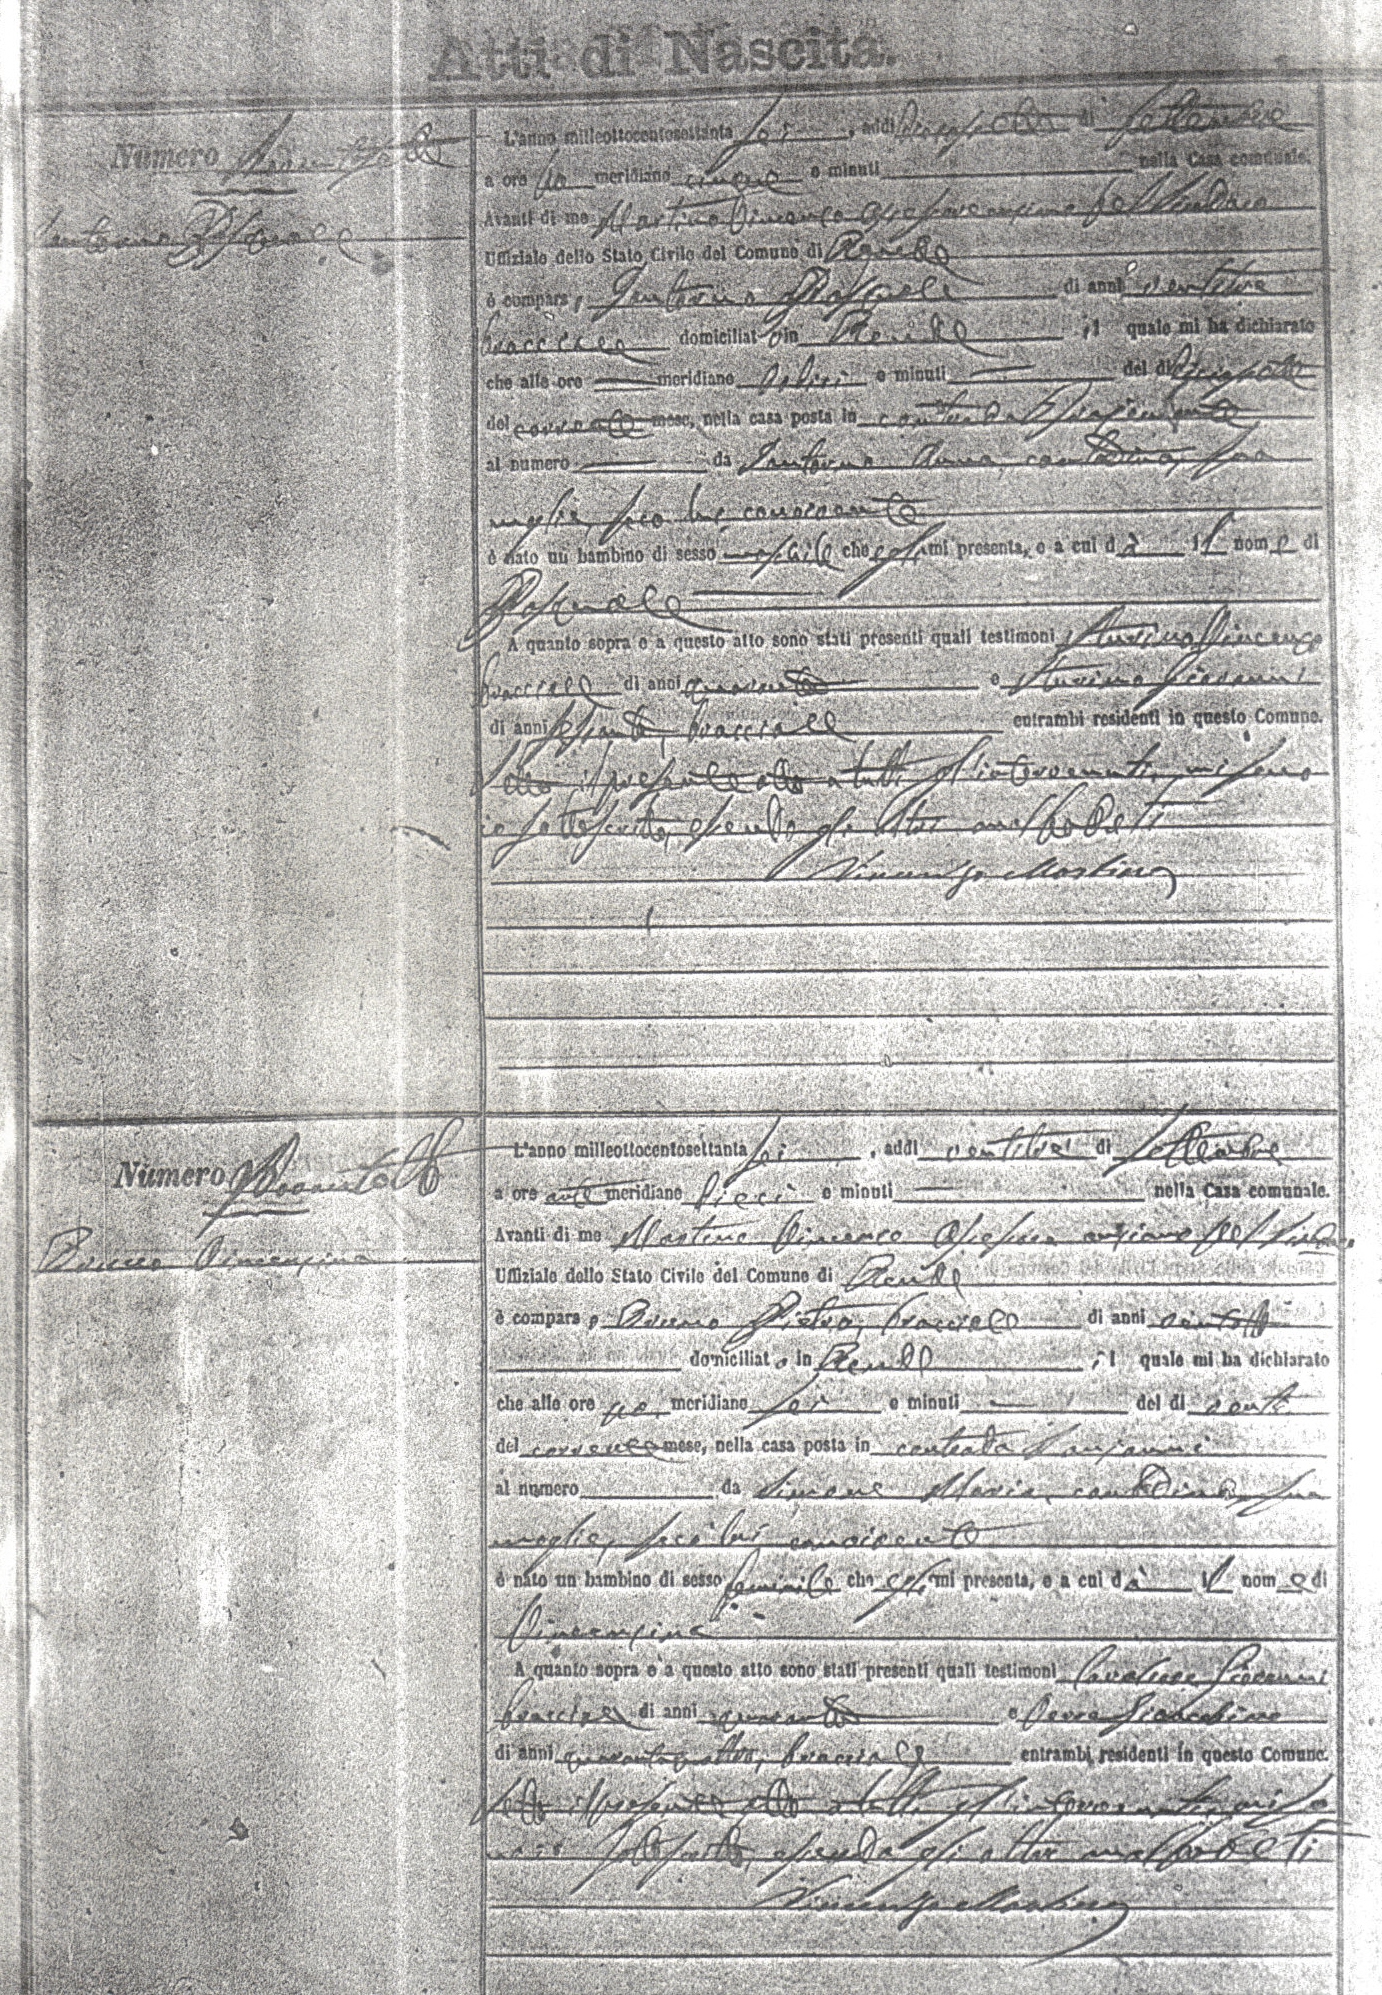 Atti di Nascita.
Numero
Pasquale
L'anno milleottocentosettanta sei, addi diciassette di Settembre
a ore po meridiane cinque e minuti nella Casa comunale.
Avanti di me Martino Vincenzo Assessore anziano del Sindaco
Uffiziale dello Stato Civile del Comune di Rende
è comparso, Pasquale di anni ventitre
bracciale domiciliato in Rende, il quale mi ha dichiarato
che alle ore meridiane dodici e minuti del dì
del corrente mese, nella casa posta in contrada
al numero da Anna, contadina, sua
moglie, seco lui convivente
è nato un bambino di sesso maschile che egli mi presenta, e a cui dà il nome di
Pasquale
A quanto sopra e a questo atto sono stati presenti quali testimoni Vincenzo
bracciale di anni quaranta e Giovanni
di anni sessanta, bracciale entrambi residenti in questo Comune.
Letto il presente atto a tutti gl'intervenuti, mi sono
io sottoscritto, essendo gli altri analfabeti
Vincenzo Martino
Numero
Vincenzina
L'anno milleottocentosettanta sei, addi ventitre di Settembre
a ore anti meridiane dieci e minuti nella Casa comunale.
Avanti di me Martino Vincenzo Assessore anziano del Sindaco
Uffiziale dello Stato Civile del Comune di Rende
è comparso, Pietro, bracciale di anni ventotto
domiciliato in Rende, il quale mi ha dichiarato
che alle ore po meridiane sei e minuti del dì venti
del corrente mese, nella casa posta in contrada
al numero da Simone Maria, contadina, sua
moglie, seco lui convivente
è nato un bambino di sesso feminile che egli mi presenta, e a cui dà il nome di
Vincenzina
A quanto sopra e a questo atto sono stati presenti quali testimoni Giovanni
bracciale di anni quaranta e
di anni quarantaquattro, bracciale entrambi residenti in questo Comune.
Letto il presente atto a tutti gl'intervenuti, mi so
no io sottoscritto, essendo gli altri analfabeti
Vincenzo Martino